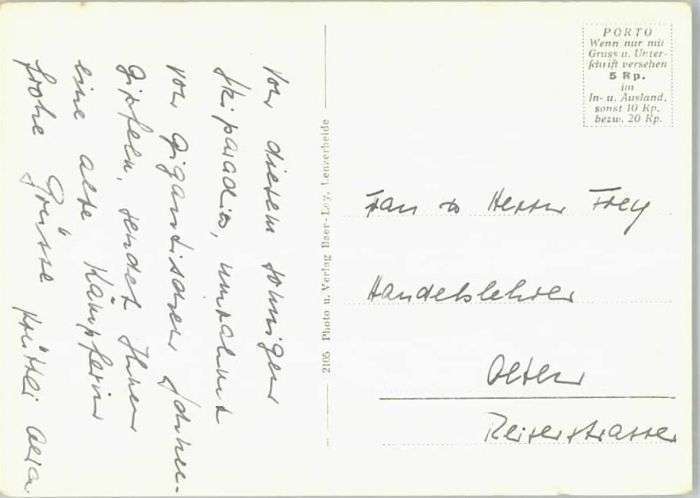 Von diesem sonnigen
Skiparadies, umrahmt
von gigantischen Schnee-
gipfeln, sendet Ihnen
eine alte Kämpferin
frohe Grüsse
2105 Photo u. Verlag Lenzerheide
PORTO
Wenn nur mit
Gruss u. Unter-
schrift versehen
5 Rp.
im
In- u. Ausland,
sonst 10 Rp.
bezw. 20 Rp.
Frau & Herrn Frey
Handelslehrer
Olten
Reiserstrasse